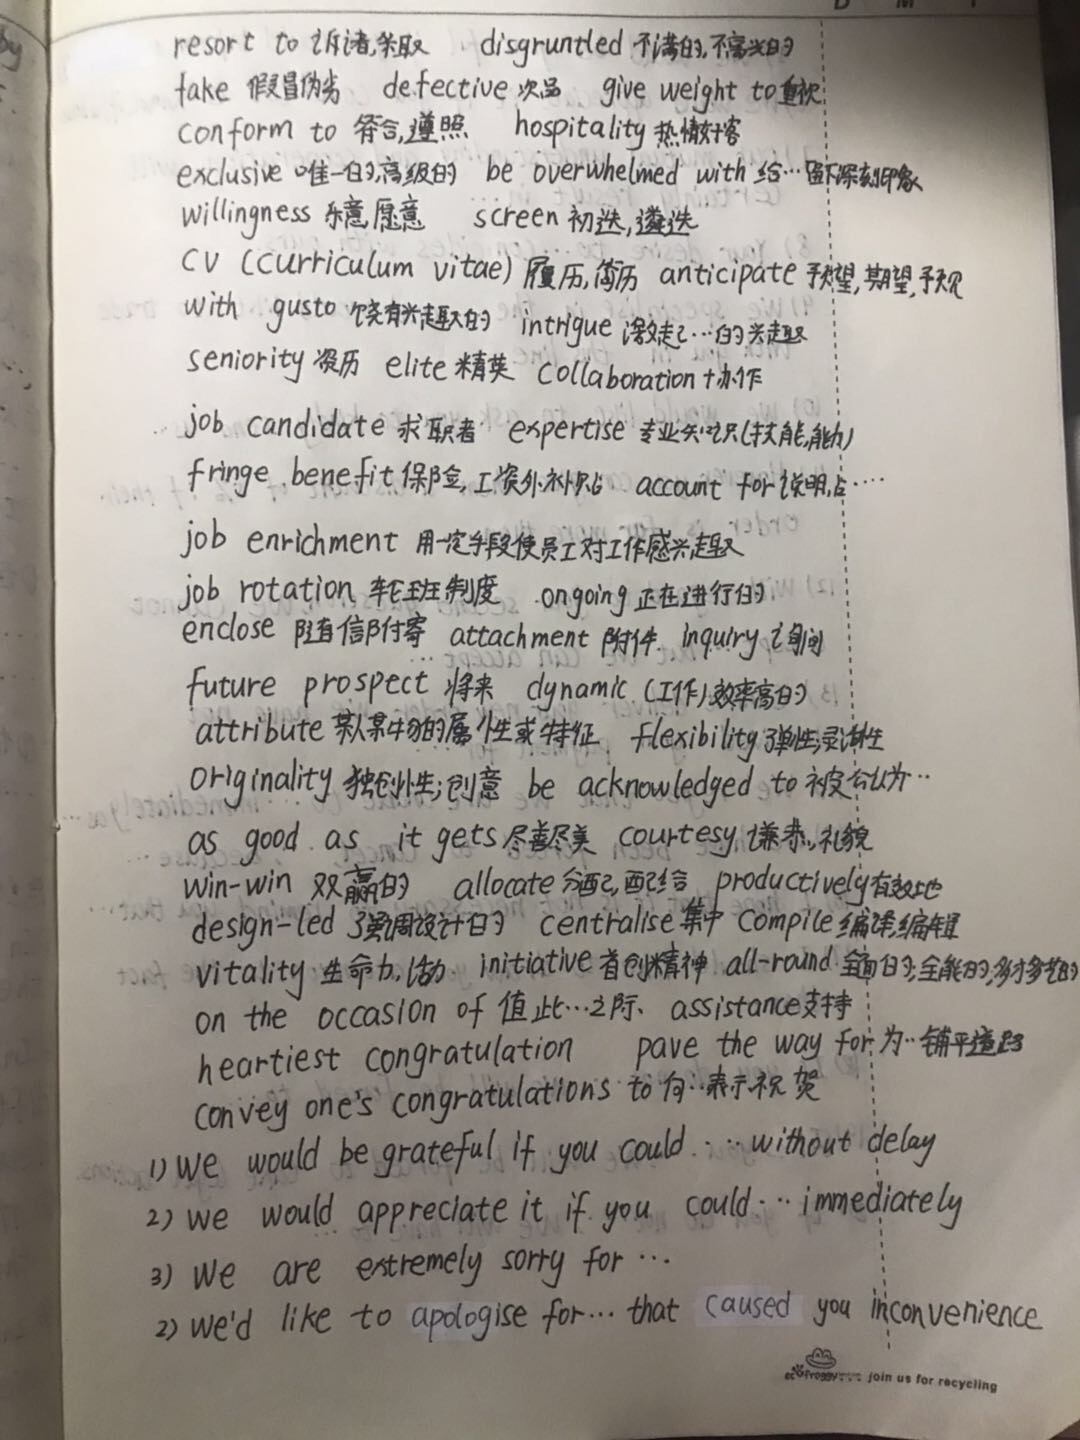 D M T
by
resort to 诉诸,采取 disgruntled 不满的,不高兴的
fake 假冒伪劣 defective 次品 give weight to 重视
conform to 符合,遵照 hospitality 热情好客
exclusive 唯一的,高级的 be overwhelmed with 给…留下深刻印象
willingness 乐意,愿意 screen 初选,遴选
CV (curriculum vitae) 履历,简历 anticipate 预望,期望,预见
with gusto 饶有兴趣的 intrigue 激起…的兴趣
seniority 资历 elite 精英 collaboration 协作
job candidate 求职者 expertise 专业知识(技能,能力)
fringe benefit 保险金,工资外补贴 account for 说明,占…
job enrichment 用一定手段使员工对工作感兴趣
job rotation 轮班制度 ongoing 正在进行的
enclose 随信附寄 attachment 附件 inquiry 询问
future prospect 将来 dynamic (工作)效率高的
attribute 某人某物的属性或特征 flexibility 弹性;灵活性
originality 独创性;创意 be acknowledged to 被公认为…
as good as it gets 尽善尽美 courtesy 谦恭,礼貌
win-win 双赢的 allocate 分配,配给 productively 有效地
design-led 强调设计的 centralise 集中 compile 编译,编辑
vitality 生命力,活力 initiative 首创精神 all-round 全面的;全能的,多才多艺的
on the occasion of 值此…之际、 assistance 支持
heartiest congratulation pave the way for 为…铺平道路
convey one's congratulations to 向…表示祝贺
1) we would be grateful if you could … without delay
2) we would appreciate it if you could … immediately
3) we are extremely sorry for …
2) we'd like to apologise for … that caused you inconvenience
ecofroggy join us for recycling